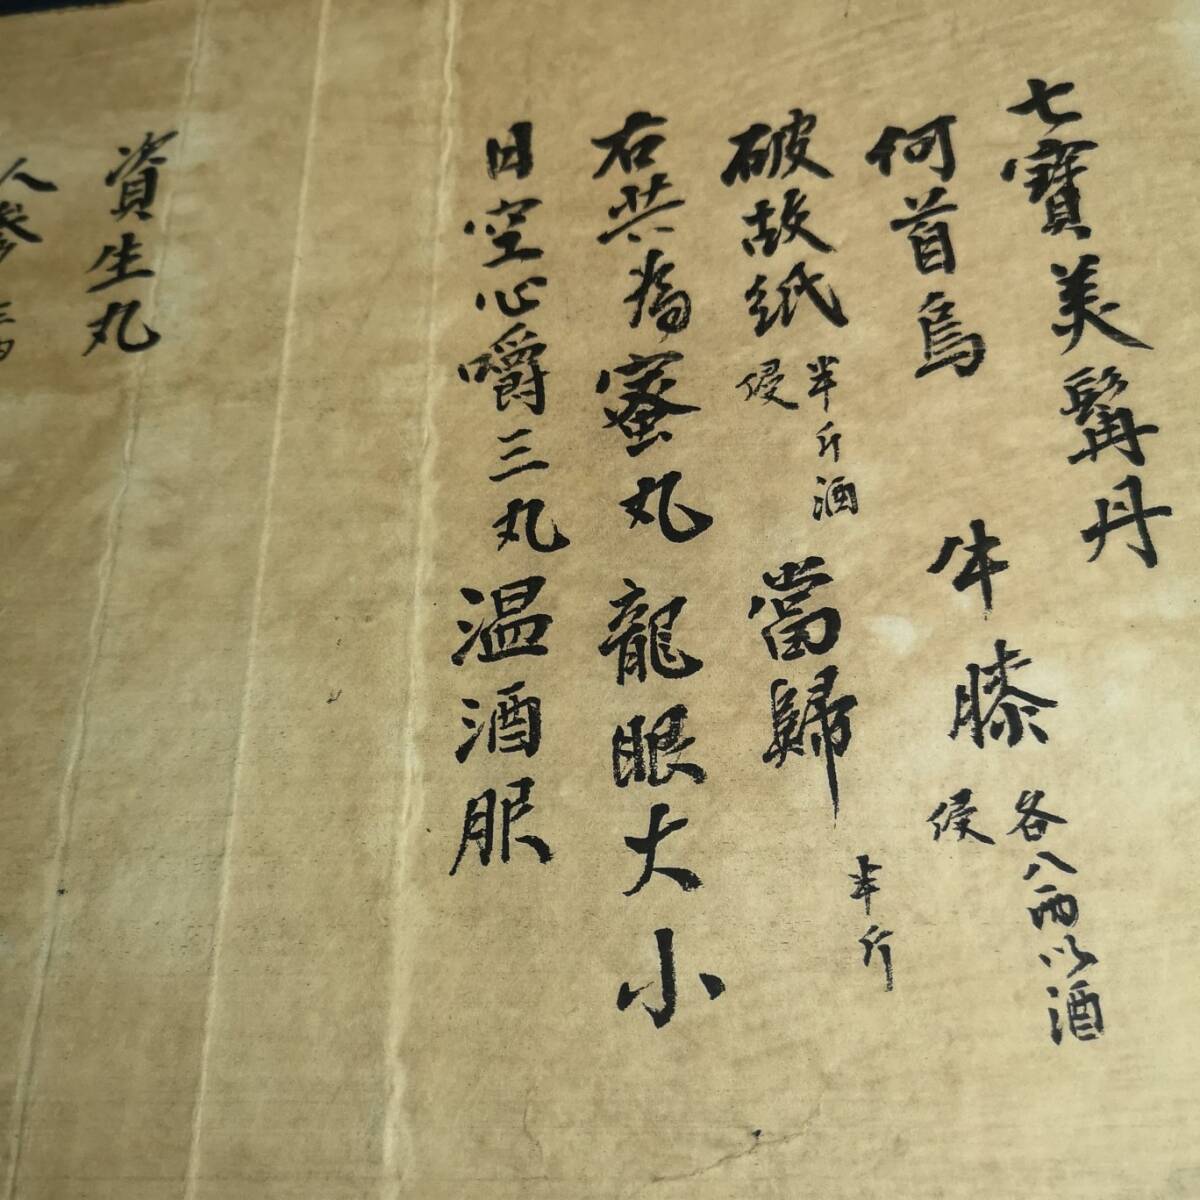 七寶美髯丹
何首烏 牛膝 各八两以酒侵
破故紙 半斤酒侵 當歸 半斤
右共為蜜丸龍眼大小
日空心嚼三丸温酒服
資生丸
人參 三两